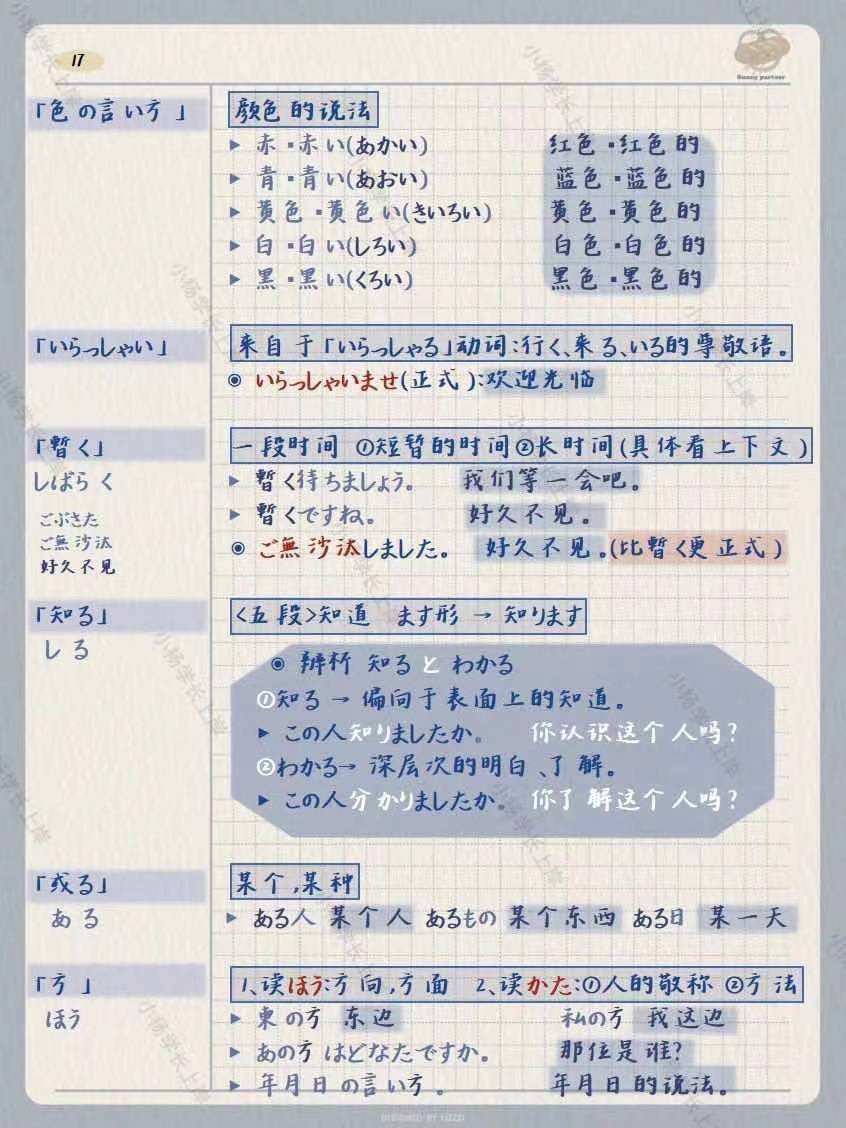 17
Sunny partner
「色の言い方」 颜色的说法
▶ 赤·赤い(あかい) 红色·红色的
▶ 青·青い(あおい) 蓝色·蓝色的
▶ 黄色·黄色い(きいろい) 黄色·黄色的
▶ 白·白い(しろい) 白色·白色的
▶ 黒·黒い(くろい) 黑色·黑色的
「いらっしゃい」 来自于「いらっしゃる」动词:行く、来る、いる的尊敬语。
◉ いらっしゃいませ(正式):欢迎光临
「暫く」 一段时间 ①短暂的时间②长时间(具体看上下文)
しばらく ▶ 暫く待ちましょう。 我们等一会吧。
▶ 暫くですね。 好久不见。
ごぶさた
ご無沙汰 ◉ ご無沙汰しました。 好久不见。(比暫く更正式)
好久不见
「知る」 <五段>知道 ます形 → 知ります
しる
◉ 辨析 知る と わかる
①知る → 偏向于表面上的知道。
▶ この人知りましたか。 你认识这个人吗?
②わかる→ 深层次的明白、了解。
▶ この人分かりましたか。 你了解这个人吗?
「或る」 某个,某种
ある ▶ ある人 某个人 あるもの 某个东西 ある日 某一天
「方」 1、读ほう:方向,方面 2、读かた:①人的敬称 ②方法
ほう ▶ 東の方 东边 私の方 我这边
▶ あの方はどなたですか。 那位是谁?
▶ 年月日の言い方。 年月日的说法。
DESIGNED BY LIZZI
小杨学长上岸